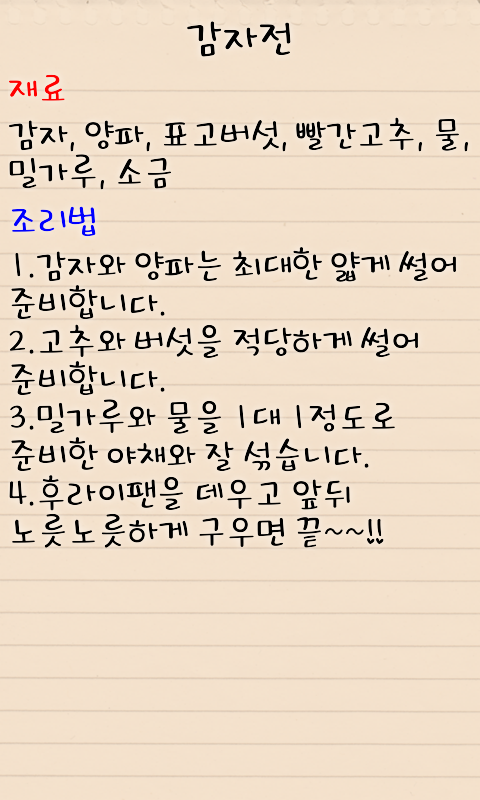 감자전
재료
감자, 양파, 표고버섯, 빨간고추, 물,
밀가루, 소금
조리법
1.감자와 양파는 최대한 얇게 썰어
준비합니다.
2.고추와 버섯을 적당하게 썰어
준비합니다.
3.밀가루와 물을 1대1정도로
준비한 야채와 잘 섞습니다.
4.후라이팬을 데우고 앞뒤
노릇노릇하게 구우면 끝~~!!